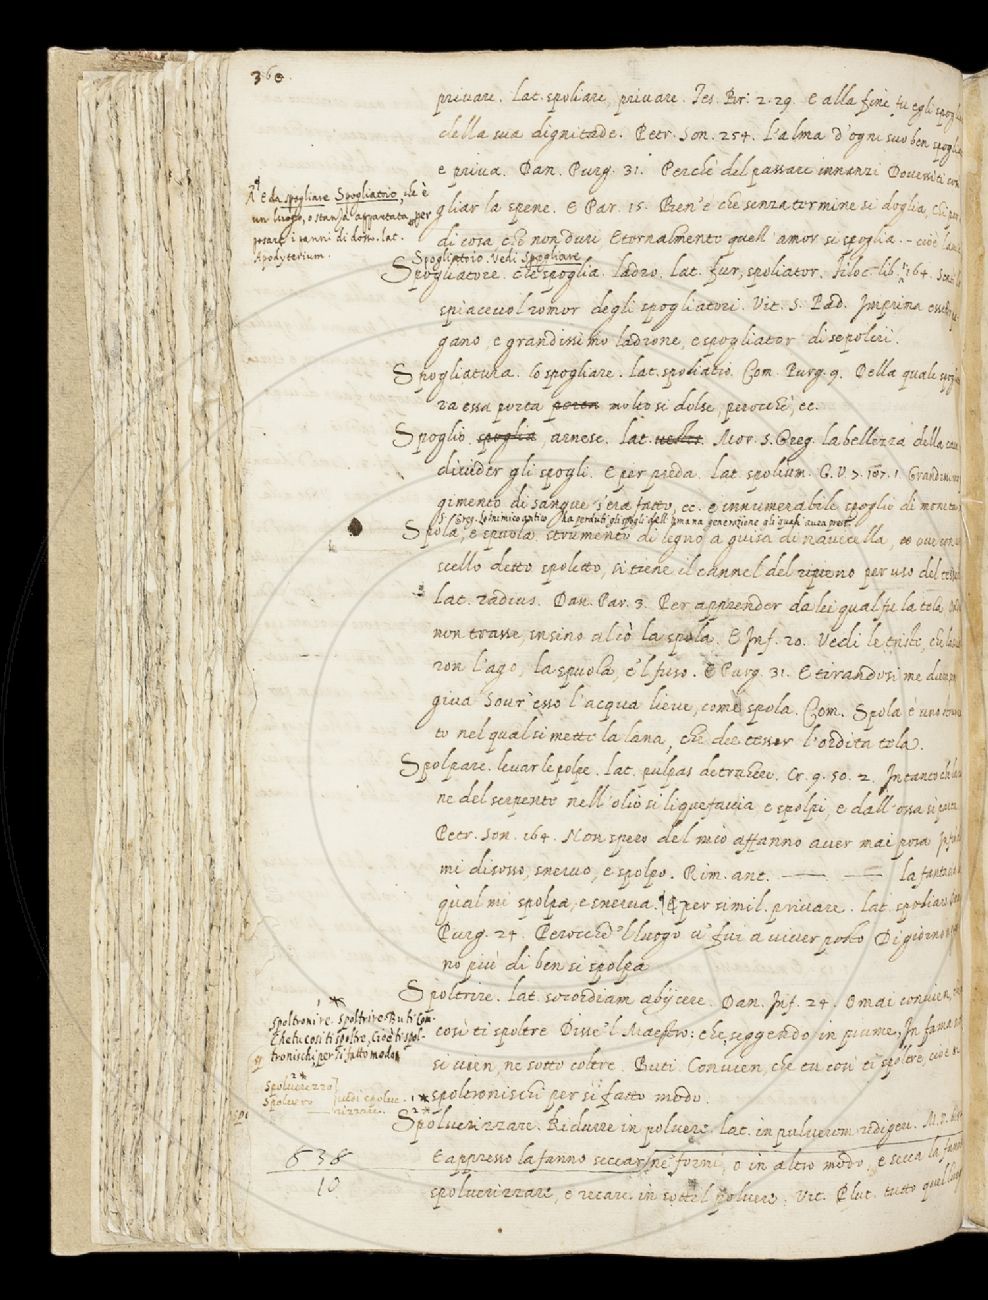 360
privare. lat. spoliare, privare. Tes. Br. 2. 29. e alla fine fu egli spogli
della sua dignitade. Petr. Son. 254. L'alma d'ogni suo ben spoglia
e priva. Dan. Purg. 31. Perchè del passare innanzi Dovessiti cosi
gliar la spene. E Par. 15. Ben'è che senza termine si doglia, Chi per
di cosa, che non duri Eternalmente quell'amor si spoglia. - cioè
A E da spogliare Spogliatoio, che è
un luogo, o stanza appartata, per
posare i panni di dosso. lat.
Apodyterium.
Spogliatoio. Vedi Spogliare
Spogliatore. che spoglia. ladro. lat. fur, spoliator. Filoc. lib. 164.
spiacevol romor degli spogliatori. Vit. S. Pad. Imprima
gano, e grandissimo ladrone, e spogliator di sepolcri.
Spogliatura. lo spogliare. lat. spoliatio. Com. Purg. 9. Della quale spoglia
ra essa porta porta molto si dolse, perocchè, ec.
Spoglio. spoglia, arnese. lat. Mor. S. Greg. la bellezza della casa
divider gli spogli. E per preda. lat. spolium. G. V. 7. 107. 1 Grandine
gimento di sangue s'era fatto, ec. e innumerabile spoglio di
S. Greg. Lo nimico antico ha perduti gli spogli dell'umana generazione gli quali avea presi
Spola, e spuola. strumento di legno a guisa di navicella, ove con
scello detto spoletto, si tiene il cannel del ripieno per uso del tesser
lat. radius. Dan. Par. 3. Per apprender da lei qual fu la tela Onde
non trasse, insino al cò la spola. E Inf. 20. Vedi le triste, che lascia
ron l'ago, la spuola, e'l fuso. E Purg. 31. E tirandosi me dietro
giva Sovr'esso l'acqua lieve, come spola. Com. Spola è uno
to nel qual si mette la lana, che dee tesser l'ordita tela.
Spolpare. levar le polpe. lat. pulpas detrahere. Cr. 9. 50. 2. Intanto che la
ne del serpente nell'olio si liquefaccia e spolpi, e dall'ossa si parta
Petr. Son. 164. Non spero del mio affanno aver mai posa
mi disosso, snervo, e spolpo. Rim. ant. —— —— la fantasia
qual mi spolpa, e snerva. E per simil. privare. lat. spoliare
Purg. 24. Perocchè 'l luogo u' fui a viver posto Di giorno in
no più di ben si spolpa
Spoltrire. lat. socordiam abijcere. Dan. Inf. 24. Omai convien,
così ti spoltre Disse'l Maestro: che, seggendo in piuma, In fama
si vien, ne sotto coltre. Buti. Convien, che tu così ti spoltre, cioè
spoltronischi per sì fatto modo.
Spoltronire. Spoltrire. Buti Con.
Che tu così ti spoltre, Cioè ti spol-
tronischi per sì fatto modo
Spolverezzo
Spolvero
vedi spolve-
rizzare.
Spolverizzare. Ridurre in polvere. lat. in pulverem redigere. M.
E appresso la fanno seccar ne' forni, o in altro modo, e secca la fanno
spolverizzare, e recare in sottil polvere. Vit. Plut. tutto quel
638
10